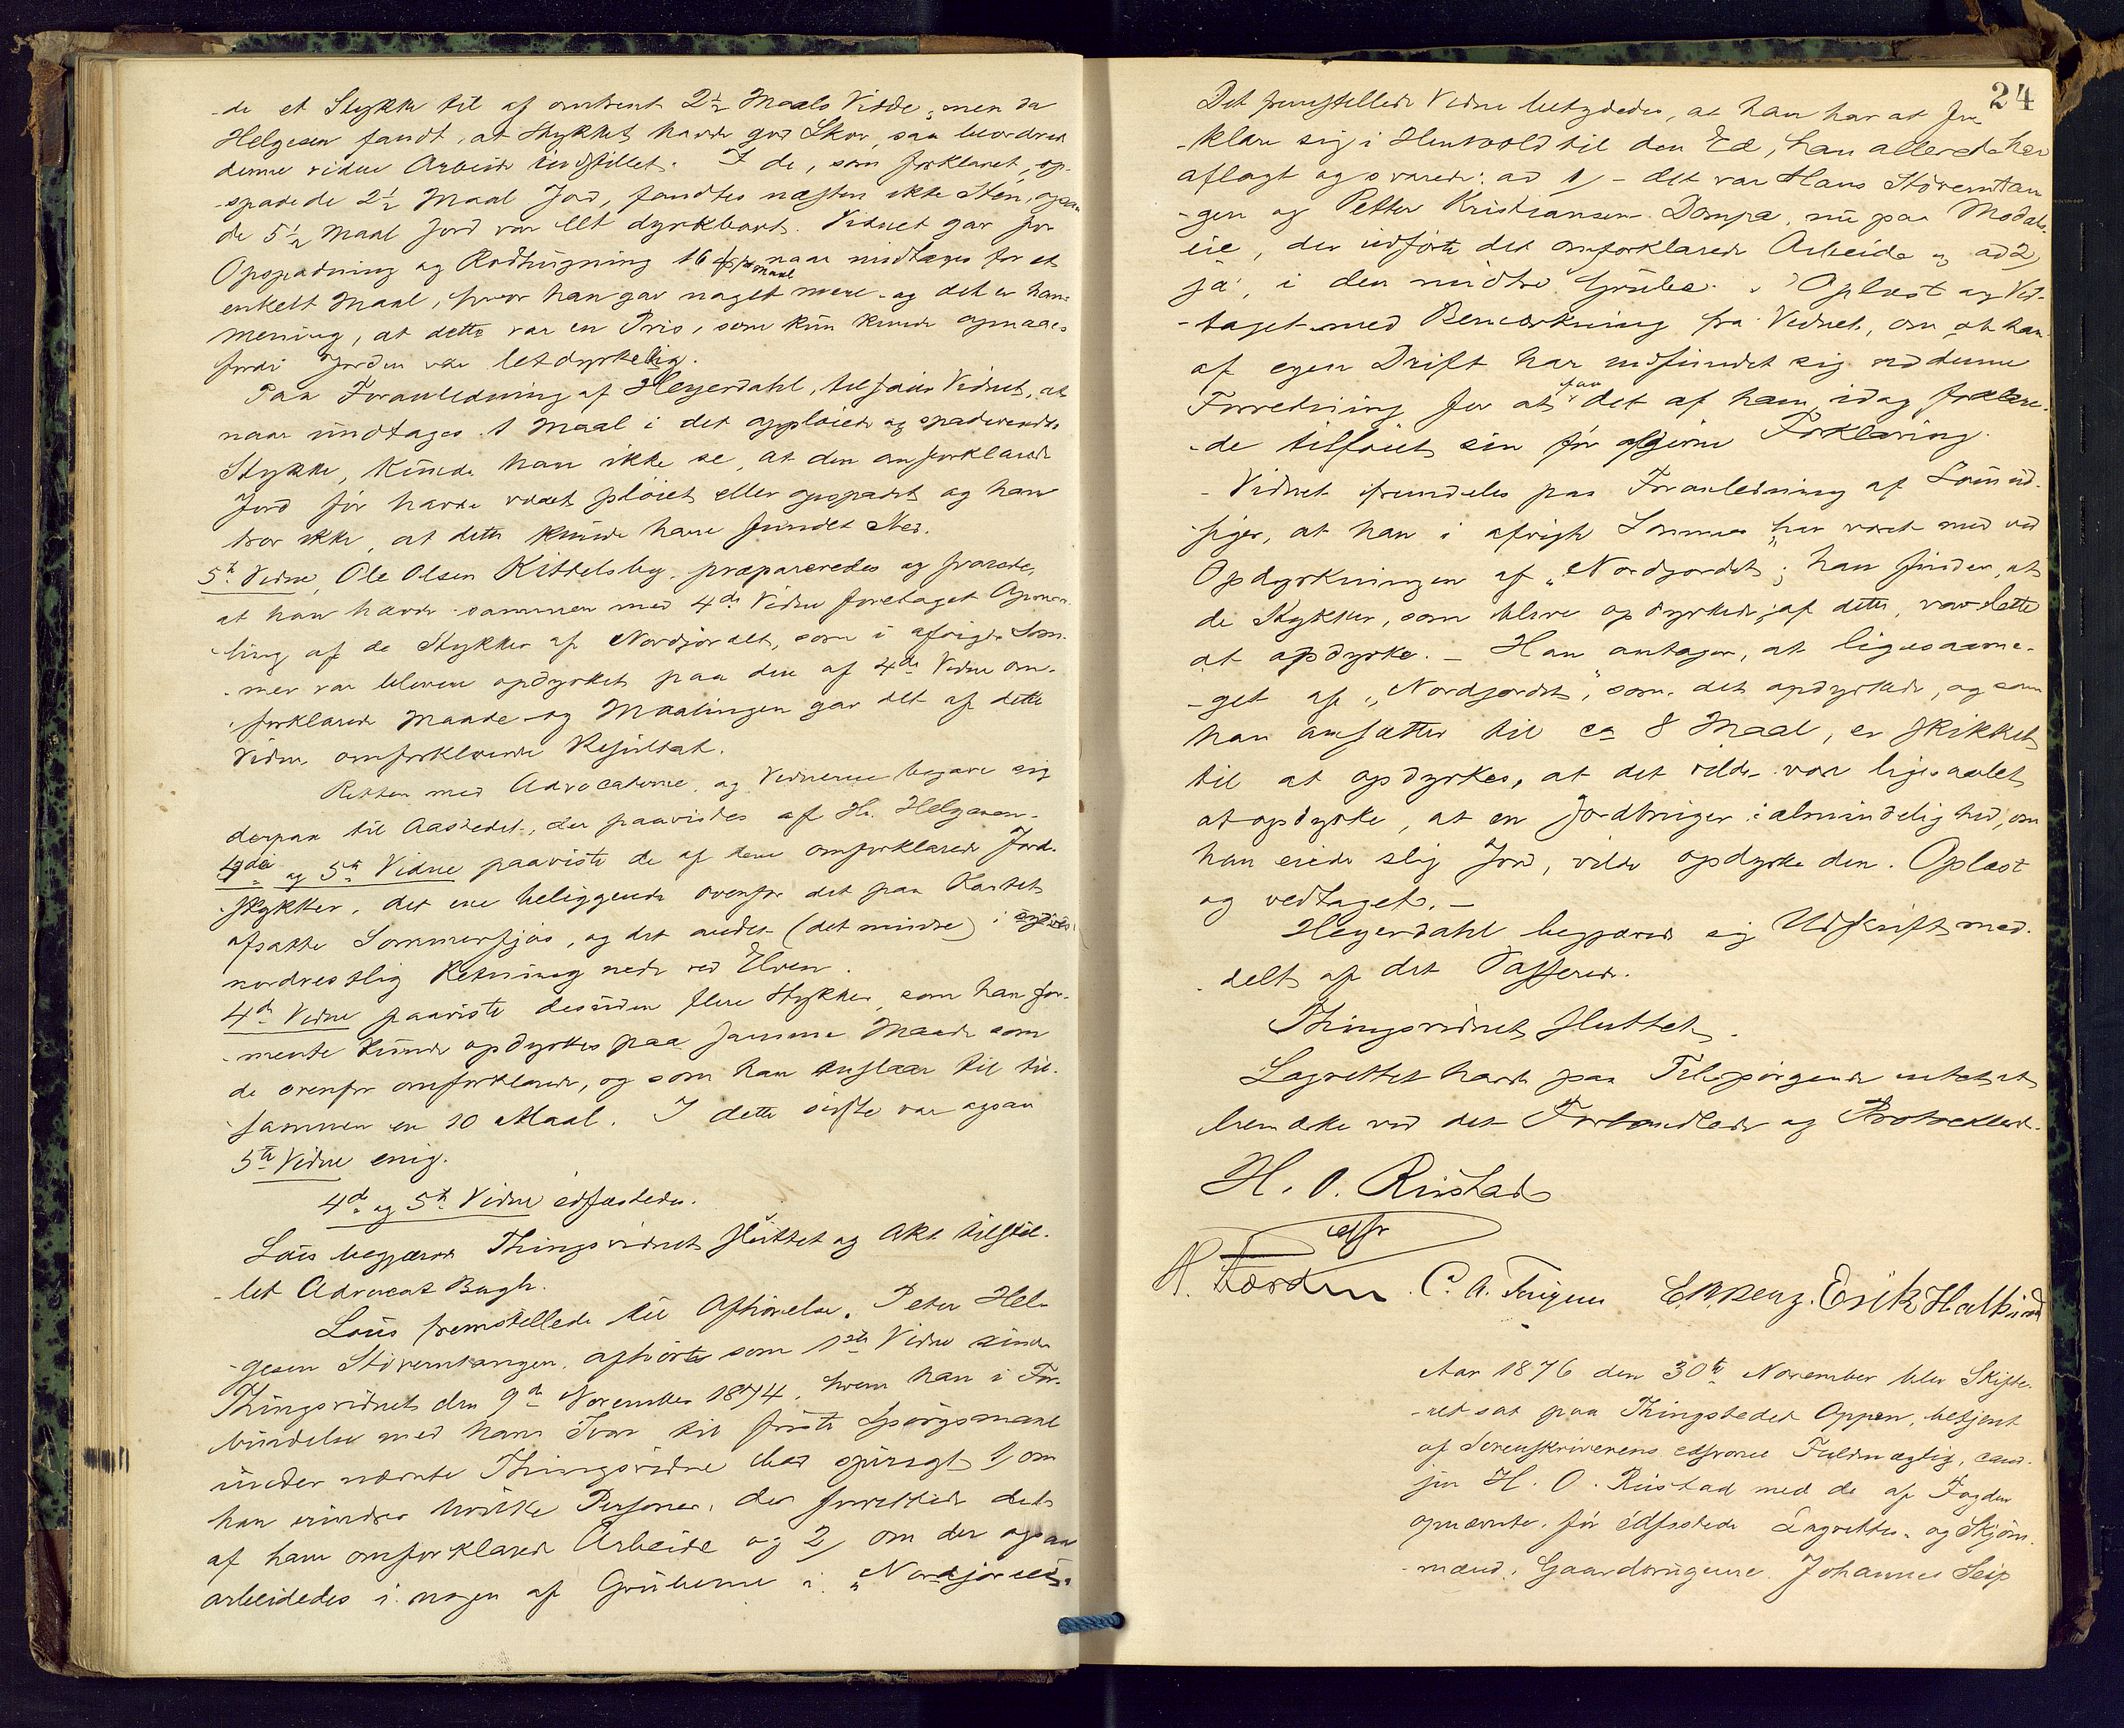 -de et Stykke til af omtrent 2½ Maals Vidde, men da
Helgesen fandt, at Stykket havde god Skov, saa beordred
denne videre Arbeide indstillet. I de, som forklaret, op-
spadede 2½ Maal Jord, fandtes næsten ikke Sten, ogsaa
de 5½ Maal Jord var let dyrkbart. Vidnet gav for
Opspadning og Rodhugning 16 pr Maal naar undtages for et
enkelt Maal, hvor han gav noget mere og det er hans
mening, at dette var en Pris, som kun kunde opnaaes
fordi Jorden var letdyrkelig.
Paa Foranledning af Heyerdahl, tilføier Vidnet, at
naar undtages 1 Maal i det oppløiede og spadevendte
Stykke, kunde han ikke se, at den omforklarede
Jord før havde været pløiet eller opspadet og han
tror ikke, at dette kunde have fundet Sted.
5te Vidne, Ole Olsen Kittelsby, præpareredes og svarede,
at han havde sammen med 4de Vidne foretaget Opmaa-
-ling af de Stykker af Nordjordet, som i afvigte Som-
-mer var bleven opdyrket paa den af 4de Vidne om-
-forklarede Maade og Maalingen gav det af dette
Vidne omforklarede Resultat.
Retten med Advocaterne og Vidnerne begave sig
derpaa til Aastedet, der paavistes af Hr. Helgesen.
4de og 5te Vidne paaviste de af dem omforklarede Jord-
stykker, det ene beliggende ovenfor det paa Kartet
afsatte Sommerfjøs, og det andet (det mindre) i
nordvestlig Retning nede ved Elven.
4de Vidne paaviste desuden flere Stykker, som han for-
-mente kunde opdyrkes paa samme Maade som
de ovenfor omforklarede, og som han anslaar til til-
sammen en 10 Maal. I dette sidste var ogsaa
5te Vidne enig.
4de og 5te Vidne edfæstedes.
Lous begjærede Thingsvidnet sluttet og Akt tilstil-
-let Advocat Bugh.
Lous fremstillede til Afhørelse, Peter Hel-
-gesen Støvern­tangen, afhørte som 1ste Vidne under
Thingsvidnet den 9de November 1874, hvem han i For-
bindelse med hans Svar til første Spørgsmaal
under nævnte Thingsvidne bad spurgt 1, om
han erindrer hvilke Personer, der forrettede det
af ham omforklarede Arbeide og 2, om der ogsaa
arbeidedes i nogen af Gruberne i "Nordjordet"
24
Det fremstillede Vidne betydedes, at han har at for-
-klare sig i Henhold til den Ed, han allerede har
aflagt og svarede: ad 1, - det var Hans Støverntan-
-gen og Petter Kristiansen Dompa, nu paa Modals-
eie, der udførte det omforklarede Arbeide og ad 2,
ja, i den midtre Grube. Oplæst og Ved-
-taget med Bemærkning fra Vidnet, om at han
af egen Drift har indfundet sig ved denne
Forretning for at faa det af ham idag forklare-
-de tilføiet sin før afgivne Forklaring.
- Vidnet fremdeles paa Foranledning af Lous ud-
siger, at han i afvigte Sommer har været med ved
Opdyrkningen af "Nordjordet"; han finder, at
de Stykker, som bleve opdyrkede af dette, var lette
at opdyrke. - Han antager, at ligesaame-
-get af "Nordjordet", som det opdyrkede, og som
han ansætter til ca 8 Maal, er skikket
til at opdyrkes, at det vilde være ligesaa let
at opdyrke, at en Jordbruger i almindelighed, om
han eiede slig Jord, vilde opdyrke den. Oplæst
og vedtaget. -
Heyerdahl begjærede sig Udskrift med-
-delt af det Passerede.
Thingsvidnet sluttet.
Lagrettet havde paa Tilspørgende intet at
bemærke ved det Forhandlede og Protokollerede.
H. O. Rustad
edsv
N. Færden. C. A. E. Erik
Aar 1876 den 30te November blev Skifte-
-ret sat paa Thingstedet Oppen, betjent
af Sorenskriverens edsvorne Fuldmægtig, cand.
jur H. O. Rustad med de af Fogden
opnævnte, før edfæstede Lagrettes- og Skjøns-
-mænd, Gaardbrugerne Johannes Seip